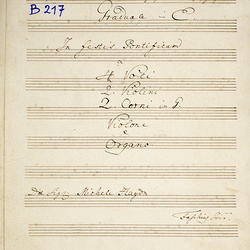 B 217
Graduale in C.
In festis Pontificum
a
4 Voci
2. Violini
2. Corni in G.
Violone
e
Organo
Del Sigre Michele Haydn